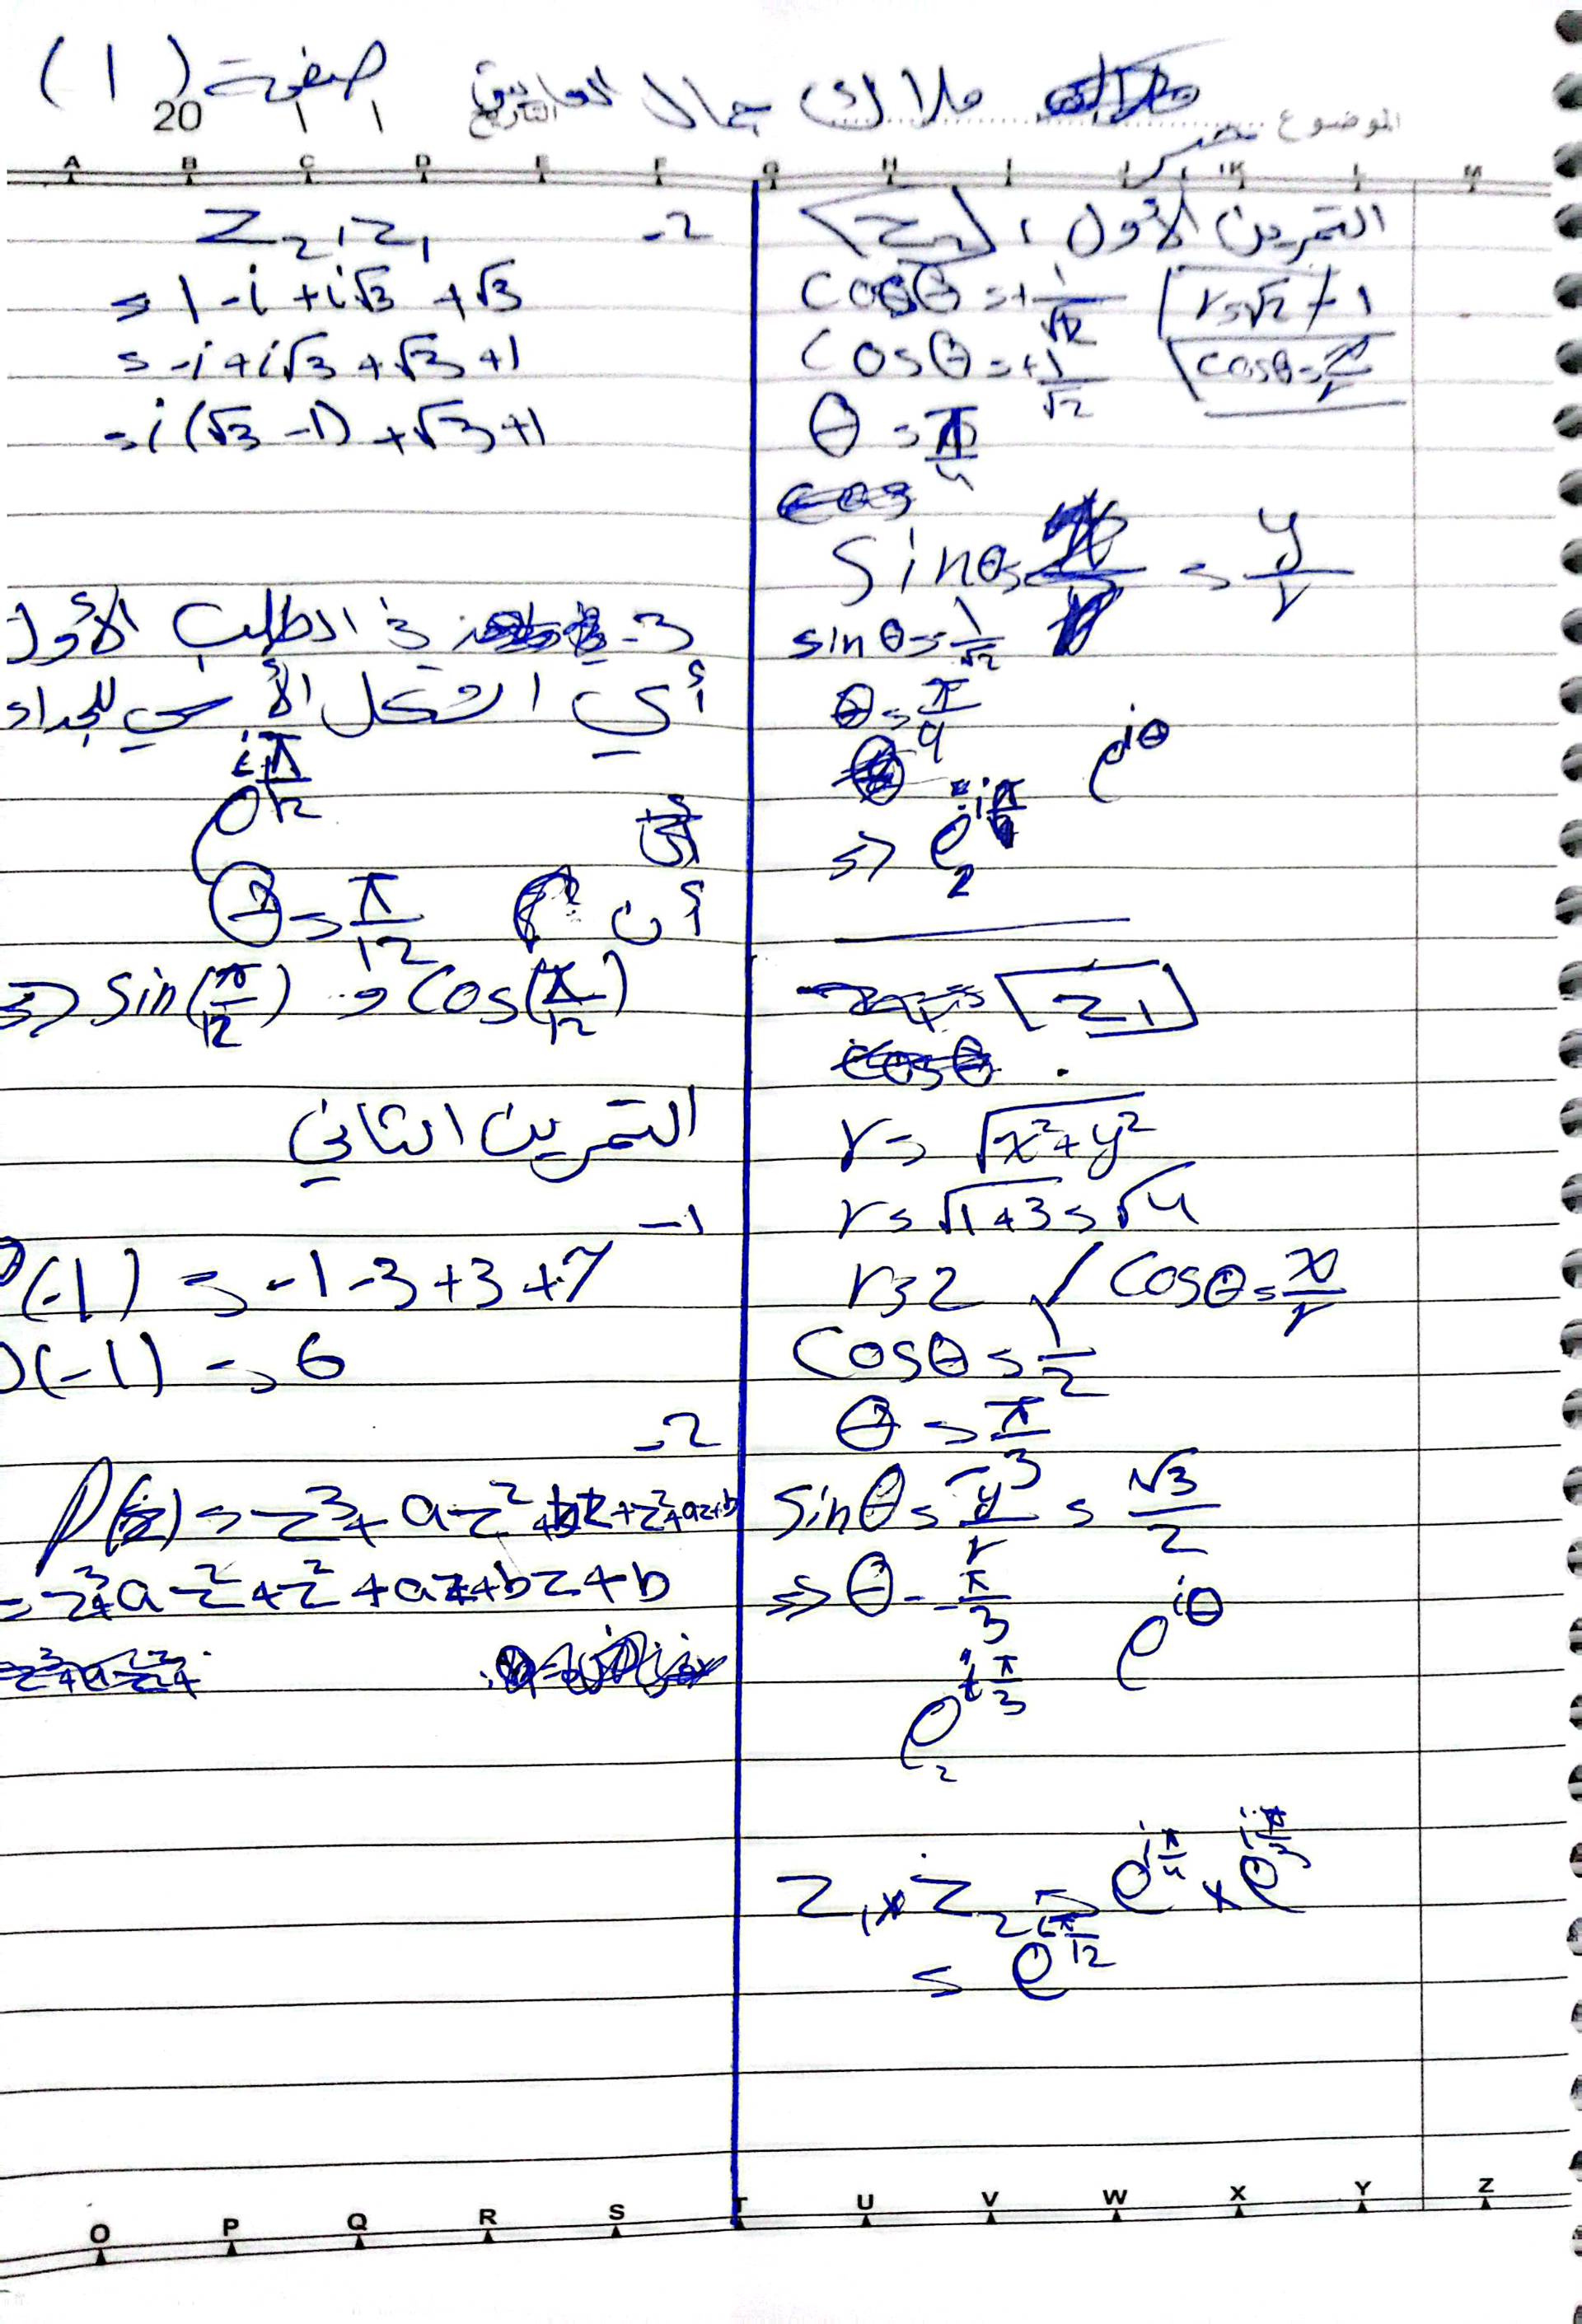 صفحة (1)
ملاك جمال
الموضوع
التاريخ
20 / /
A B C D E F G H I J K L M
التمرين الأول، z2
cosθ = +1/√2
r=√2 ≠ 1
cosθ = +1/√2
cosθ = x/r
θ = π/4
sinθ = y/r
sinθ = 1/√2
θ = π/4
e^iθ
=> e^iπ/4
2
z1
r = √x²+y²
r = √1+3 = √4
r = 2 / cosθ = x/r
cosθ = 1/2
θ = π/3
sinθ = y/r = √3/2
=> θ = π/3
e^iθ
e^iπ/3
2
z1 × z2 = e^iπ/4 × e^iπ/3
= e^iπ/12
-2
z2, z1
= 1 - i + i√3 + √3
= -i + i√3 + √3 + 1
= i(√3 - 1) + √3 + 1
3- في الطلب الأول
أي الشكل الأسي للجداء
e^iπ/12
أي
أن θ = π/12
=> sin(π/12) و cos(π/12)
التمرين الثاني
-1
P(-1) = -1 -3 +3 +7
P(-1) = 6
-2
P(z) = z³ + az² + bz + z² + az + b
= z³ + az² + z² + az + bz + b
O P Q R S T U V W X Y Z